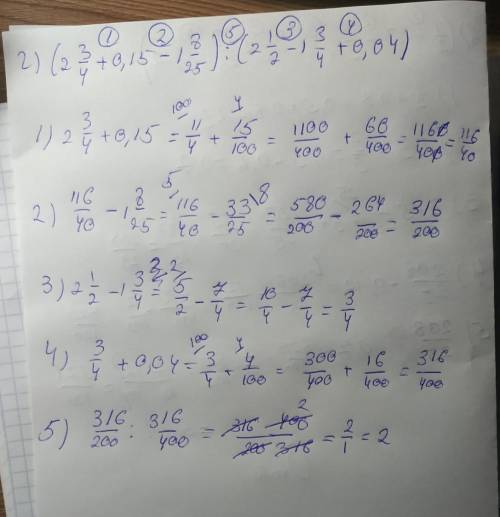 ① ② ⑤ ③ ④
2) (2 3/4 + 0,15 − 1 8/25) : (2 1/2 − 1 3/4 + 0,04)
100 4
1) 2 3/4 + 0,15 = 11/4 + 15/100 = 1100/400 + 60/400 = 1160/400 = 116/40
5 8
2) 116/40 − 1 8/25 = 116/40 − 33/25 = 580/200 − 264/200 = 316/200
2
3) 2 1/2 − 1 3/4 = 5/2 − 7/4 = 10/4 − 7/4 = 3/4
100 4
4) 3/4 + 0,04 = 3/4 + 4/100 = 300/400 + 16/400 = 316/400
2
5) 316/200 : 316/400 = 316 400/200 316 = 2/1 = 2